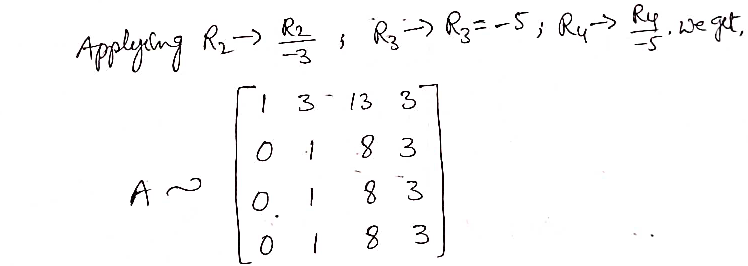 Applying R₂→ R₂/-3 ; R₃→ R₃=-5 ; R₄→ R₄/-5 . We get,
1 3 13 3
0 1 8 3
A ~
0 1 8 3
0 1 8 3